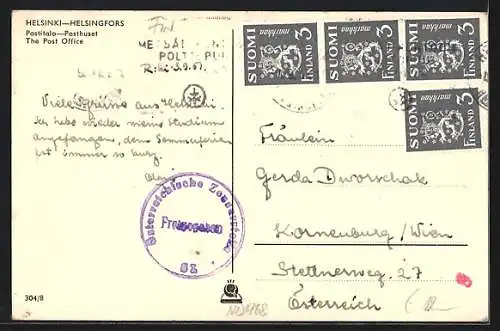 HELSINKI—HELSINGFORS
Postitalo—Posthuset
The Post Office
Viele Grüsse aus Helsinki.
Ich habe wieder meine Studium
angefangen, denn Sommerferien
ist immer so kurz.
SUOMI
markkaa
3
FINLAND
SUOMI
markkaa
3
FINLAND
SUOMI
markkaa
3
FINLAND
SUOMI
markkaa
3
FINLAND
Fräulein
Gerda Dworschak
Korneuburg/Wien
Stettnerweg. 27
Österreich
Österreichische Zensurstelle
Freigegeben
304/8